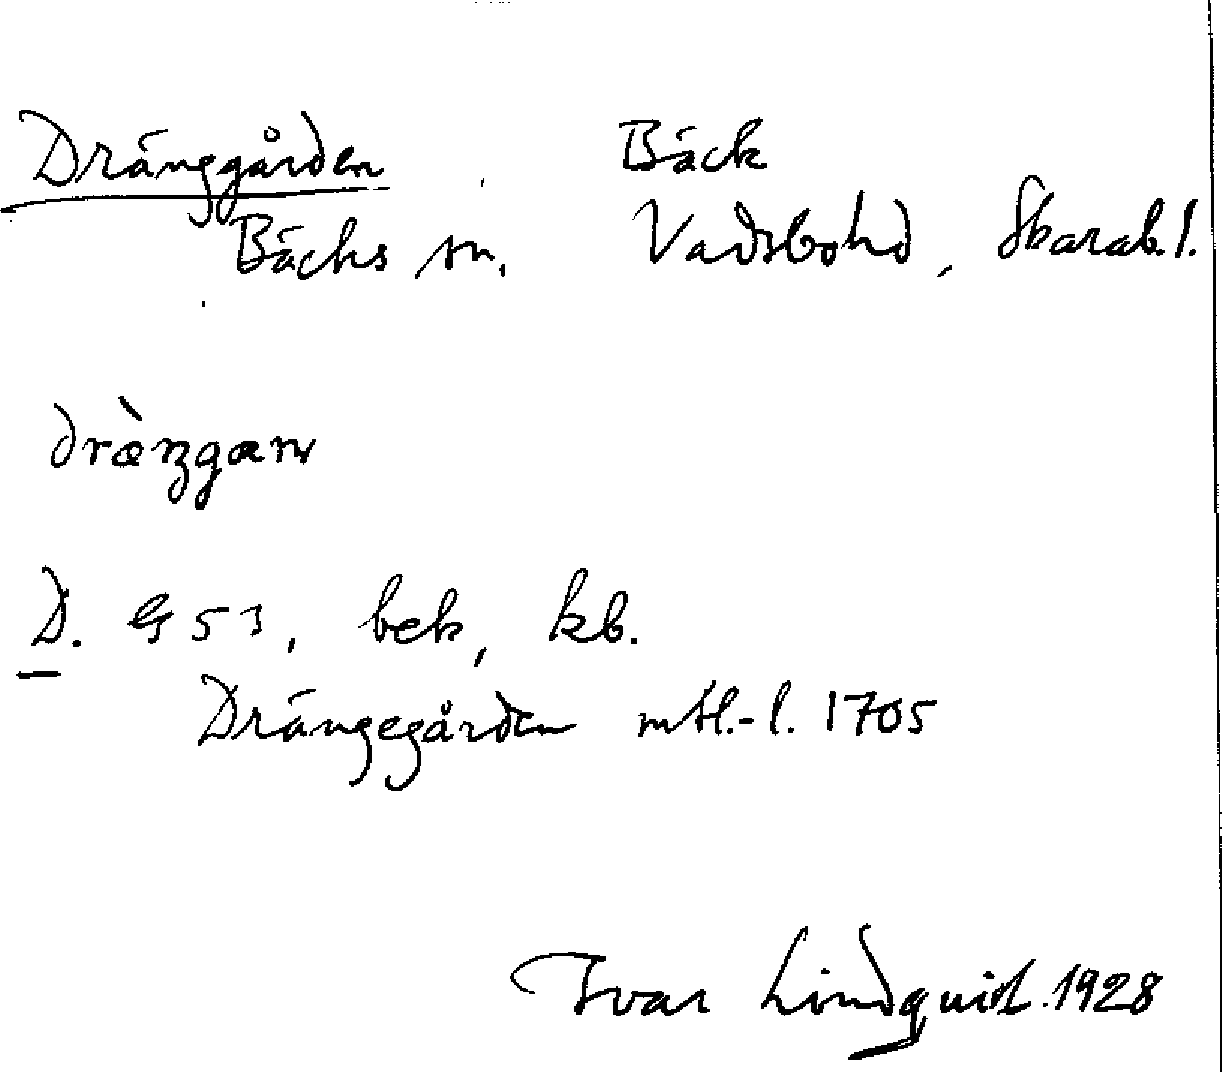 Dränggården Bäck
Bäcks sn. Vadsbohd, Skarab. l.
dræ̀ŋgaɳ
D. G 53, bek, kb.
Drängegården mtl.-l. 1705
Ivar Lindquist. 1928